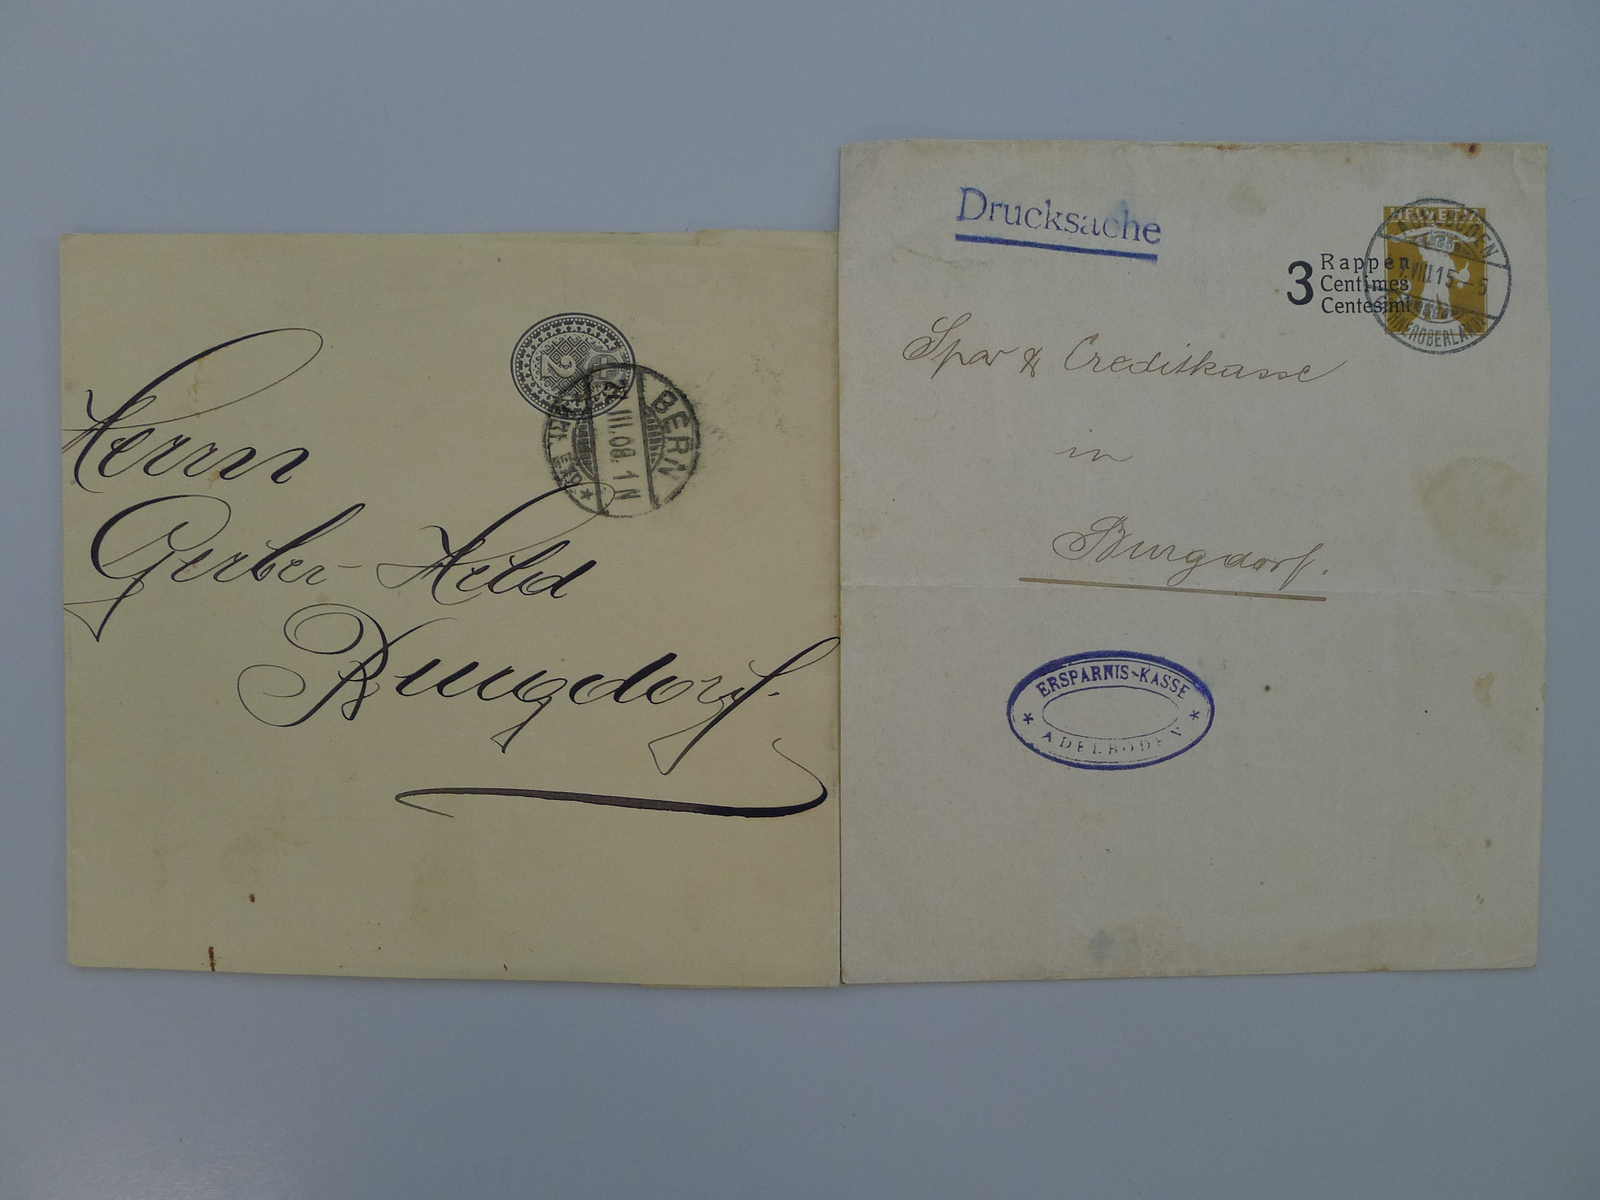 Herrn
Gerber-Held
Burgdorf.
2
BERN
III.08. 1N
Drucksache
HELVETIA
3 Rappen
Centimes
Centesimi
ADELBODEN
VIII 15 - 5
Spar & Creditkasse
in
Burgdorf.
ERSPARNIS-KASSE
* ADELBODEN *